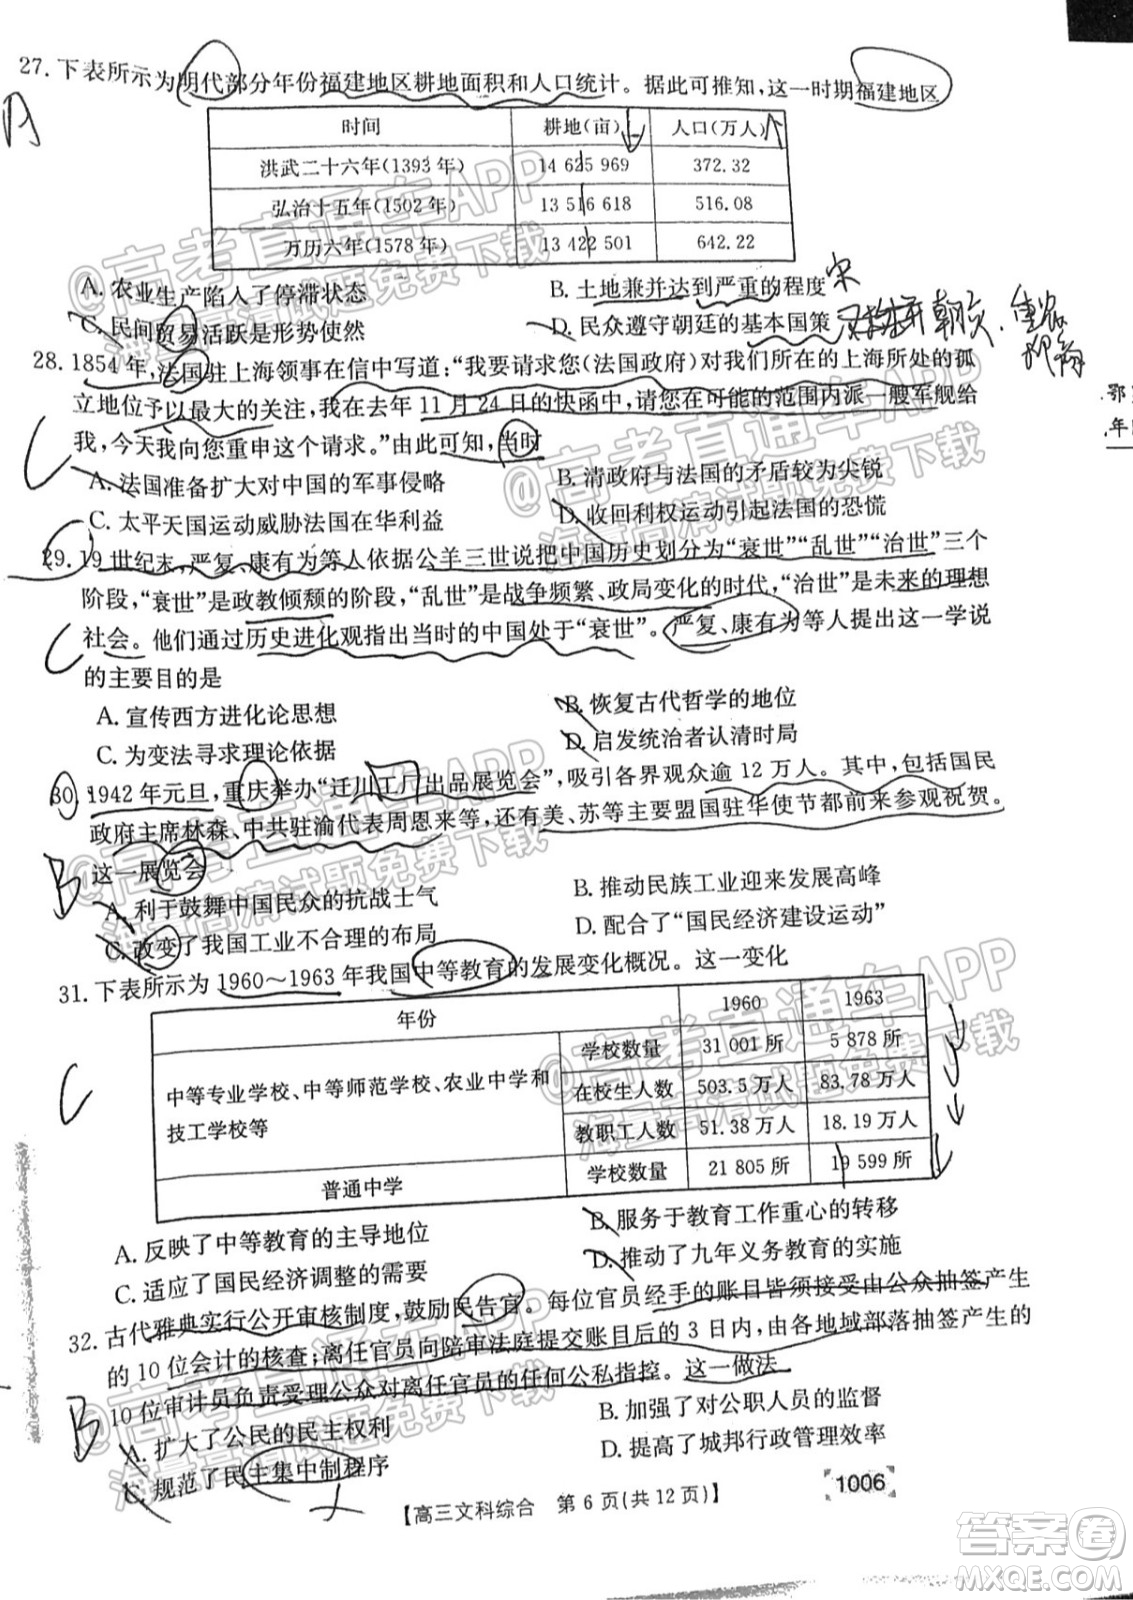 27. 下表所示为明代部分年份福建地区耕地面积和人口统计。据此可推知,这一时期福建地区
时间 耕地(亩) 人口(万人)
洪武二十六年(1393 年) 14 625 969 372.32
弘治十五年(1502 年) 13 516 618 516.08
万历六年(1578 年) 13 422 501 642.22
A. 农业生产陷入了停滞状态 B. 土地兼并达到严重的程度
C. 民间贸易活跃是形势使然 D. 民众遵守朝廷的基本国策
28. 1854 年,法国驻上海领事在信中写道:“我要请求您(法国政府)对我们所在的上海所处的孤
立地位予以最大的关注,我在去年 11 月 24 日的快函中,请您在可能的范围内派一艘军舰给
我,今天我向您重申这个请求。”由此可知,当时
A. 法国准备扩大对中国的军事侵略 B. 清政府与法国的矛盾较为尖锐
C. 太平天国运动威胁法国在华利益 D. 收回利权运动引起法国的恐慌
29. 19 世纪末,严复、康有为等人依据公羊三世说把中国历史划分为“衰世”“乱世”“治世”三个
阶段,“衰世”是政教倾颓的阶段,“乱世”是战争频繁、政局变化的时代,“治世”是未来的理想
社会。他们通过历史进化观指出当时的中国处于“衰世”。严复、康有为等人提出这一学说
的主要目的是
A. 宣传西方进化论思想 B. 恢复古代哲学的地位
C. 为变法寻求理论依据 D. 启发统治者认清时局
30. 1942 年元旦,重庆举办“迁川工厂出品展览会”,吸引各界观众逾 12 万人。其中,包含国民
政府主席林森、中共驻渝代表周恩来等,还有美、苏等主要盟国驻华使节都前来参观祝贺。
这一展览会
A. 利于鼓舞中国民众的抗战士气 B. 推动民族工业迎来发展高峰
C. 改变了我国工业不合理的布局 D. 配合了“国民经济建设运动”
31. 下表所示为 1960～1963 年我国中等教育的发展变化概况。这一变化
年份 1960 1963
中等专业学校、中等师范学校、农业中学和技工学校等 学校数量 31 001 所 5 878 所
在校生人数 503.5 万人 83.78 万人
教职工人数 51.38 万人 18.19 万人
普通中学 学校数量 21 805 所 19 599 所
A. 反映了中等教育的主导地位 B. 服务于教育工作重心的转移
C. 适应了国民经济调整的需要 D. 推动了九年义务教育的实施
32. 古代雅典实行公开审核制度,鼓励民告官。每位官员经手的账目皆须接受由公众抽签产生
的 10 位会计的核查;离任官员向陪审法庭提交账目后的 3 日内,由各地域部落抽签产生的
10 位审计员负责受理公众对离任官员的任何公私指控。这一做法
A. 扩大了公民的民主权利 B. 加强了对公职人员的监督
C. 规范了民主集中制程序 D. 提高了城邦行政管理效率
【高三文科综合 第 6 页(共 12 页)】
1006
答案圈
MXQE.COM
@高考直通车APP
海量高清试题免费下载